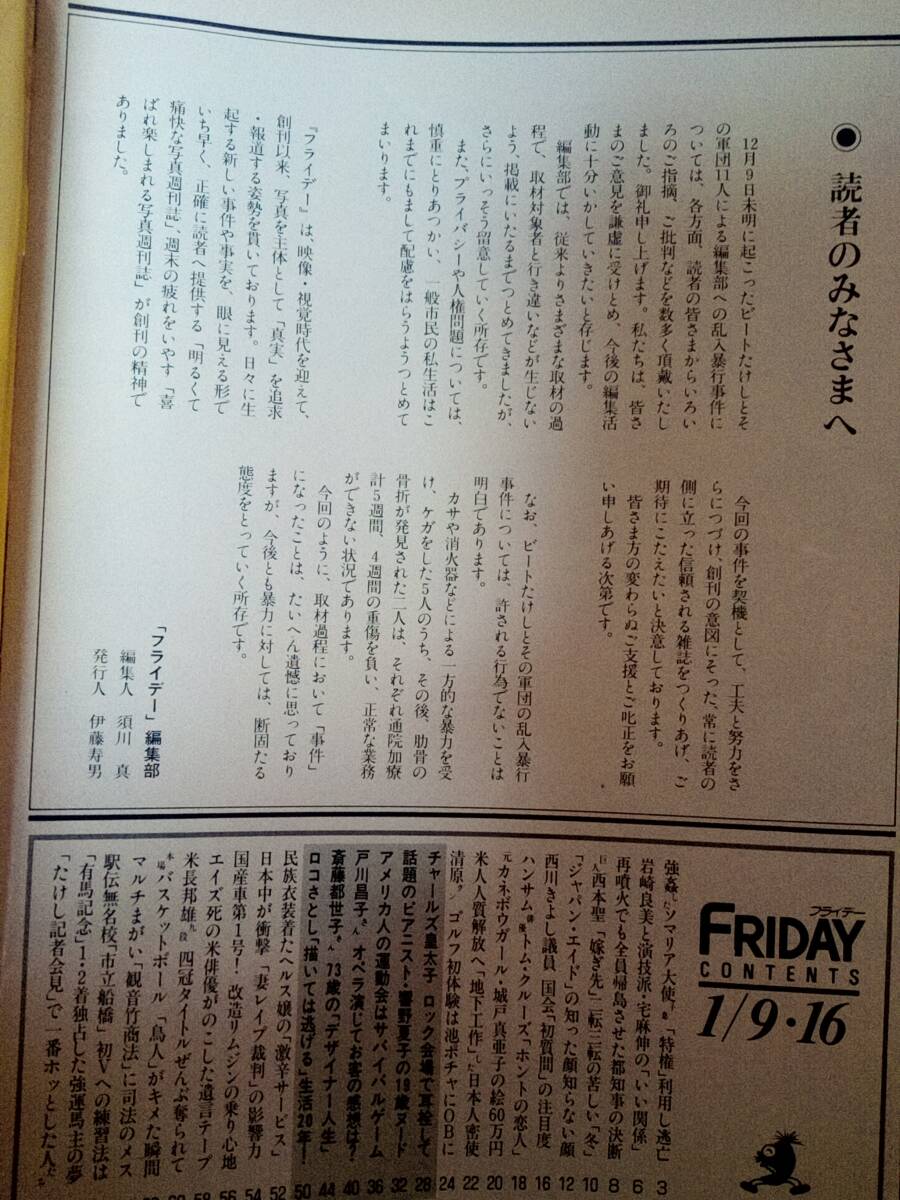 読者のみなさまへ
12月9日未明に起こったビートたけしとそ
の軍団11人による編集部への乱入暴行事件に
ついては、各方面、読者の皆さまからいろい
ろのご指摘、ご批判などを数多く頂戴いたし
ました。御礼申し上げます。私たちは、皆さ
まのご意見を謙虚に受けとめ、今後の編集活
動に十分いかしていきたいと存じます。
編集部では、従来よりさまざまな取材の過
程で、取材対象者と行き違いなどが生じない
よう、掲載にいたるまでつとめてきましたが、
さらにいっそう留意していく所存です。
また、プライバシーや人権問題については、
慎重にとりあつかい、一般市民の私生活はこ
れまでにもまして配慮をはらうようつとめて
まいります。
『フライデー』は、映像・視覚時代を迎えて、
創刊以来、写真を主体として「真実」を追求
・報道する姿勢を貫いております。日々に生
起する新しい事件や事実を、眼に見える形で
いち早く、正確に読者へ提供する「明るくて
痛快な写真週刊誌」、週末の疲れをいやす「喜
ばれ楽しまれる写真週刊誌」が創刊の精神で
ありました。
今回の事件を契機として、工夫と努力をさ
らにつづけ、創刊の意図にそった、常に読者の
側に立った信頼される雑誌をつくりあげ、ご
期待にこたえたいと決意しております。
皆さま方の変わらぬご支援とご叱正をお願
い申しあげる次第です。
なお、ビートたけしとその軍団の乱入暴行
事件については、許される行為でないことは
明白であります。
カサや消火器などによる一方的な暴力を受
け、ケガをした5人のうち、その後、肋骨の
骨折が発見された二人は、それぞれ通院加療
計5週間、4週間の重傷を負い、正常な業務
ができない状況であります。
今回のように、取材過程において「事件」
になったことは、たいへん遺憾に思っており
ますが、今後とも暴力に対しては、断固たる
態度をとっていく所存です。
「フライデー」編集部
編集人 須川 真
発行人 伊藤寿男
フライデー
FRIDAY
CONTENTS
1/9・16
強姦したソマリア大使「特権」利用し逃亡 3
岩崎良美と演技派・宅麻伸の「いい関係」 6
再噴火でも全員帰島させた都知事の決断 8
巨人西本聖「嫁ぎ先」二転三転の苦しい「冬」 10
「ジャパン・エイド」の知った顔知らない顔 12
西川きよし議員 国会「初質問」の注目度 16
ハンサム俳優トム・クルーズ「ホントの恋人」 18
元カネボウガール・城戸真亜子の絵60万円 20
米人人質解放へ「地下工作」した日本人密使 22
清原 ゴルフ初体験は池ポチャにOBに 24
チャールズ皇太子 ロック会場で耳栓して 28
話題のピアニスト・響野夏子の19歳ヌード 32
アメリカ人の運動会はサバイバルゲーム 36
戸川昌子さん オペラ演じてお客の感想は? 40
斎藤都世子さん 73歳の「デザイナー人生」 44
ロコさとし「描いては逃げる」生活20年! 50
民族衣装着たヘルス嬢の「激辛サービス」 52
日本中が衝撃「妻レイプ裁判」の影響力 54
国産車第1号! 改造リムジンの乗り心地 56
エイズ死の米俳優がのこした遺言テープ 58
米長邦雄九段 四冠タイトルぜんぶ奪られて
本場バスケットボール「鳥人」がキメた瞬間
マルチまがい「観音竹商法」に司法のメス
駅伝無名校「市立船橋」初Vへの練習法は
「有馬記念」1・2着独占した強運馬主の夢
「たけし記者会見」で一番ホッとした人だ